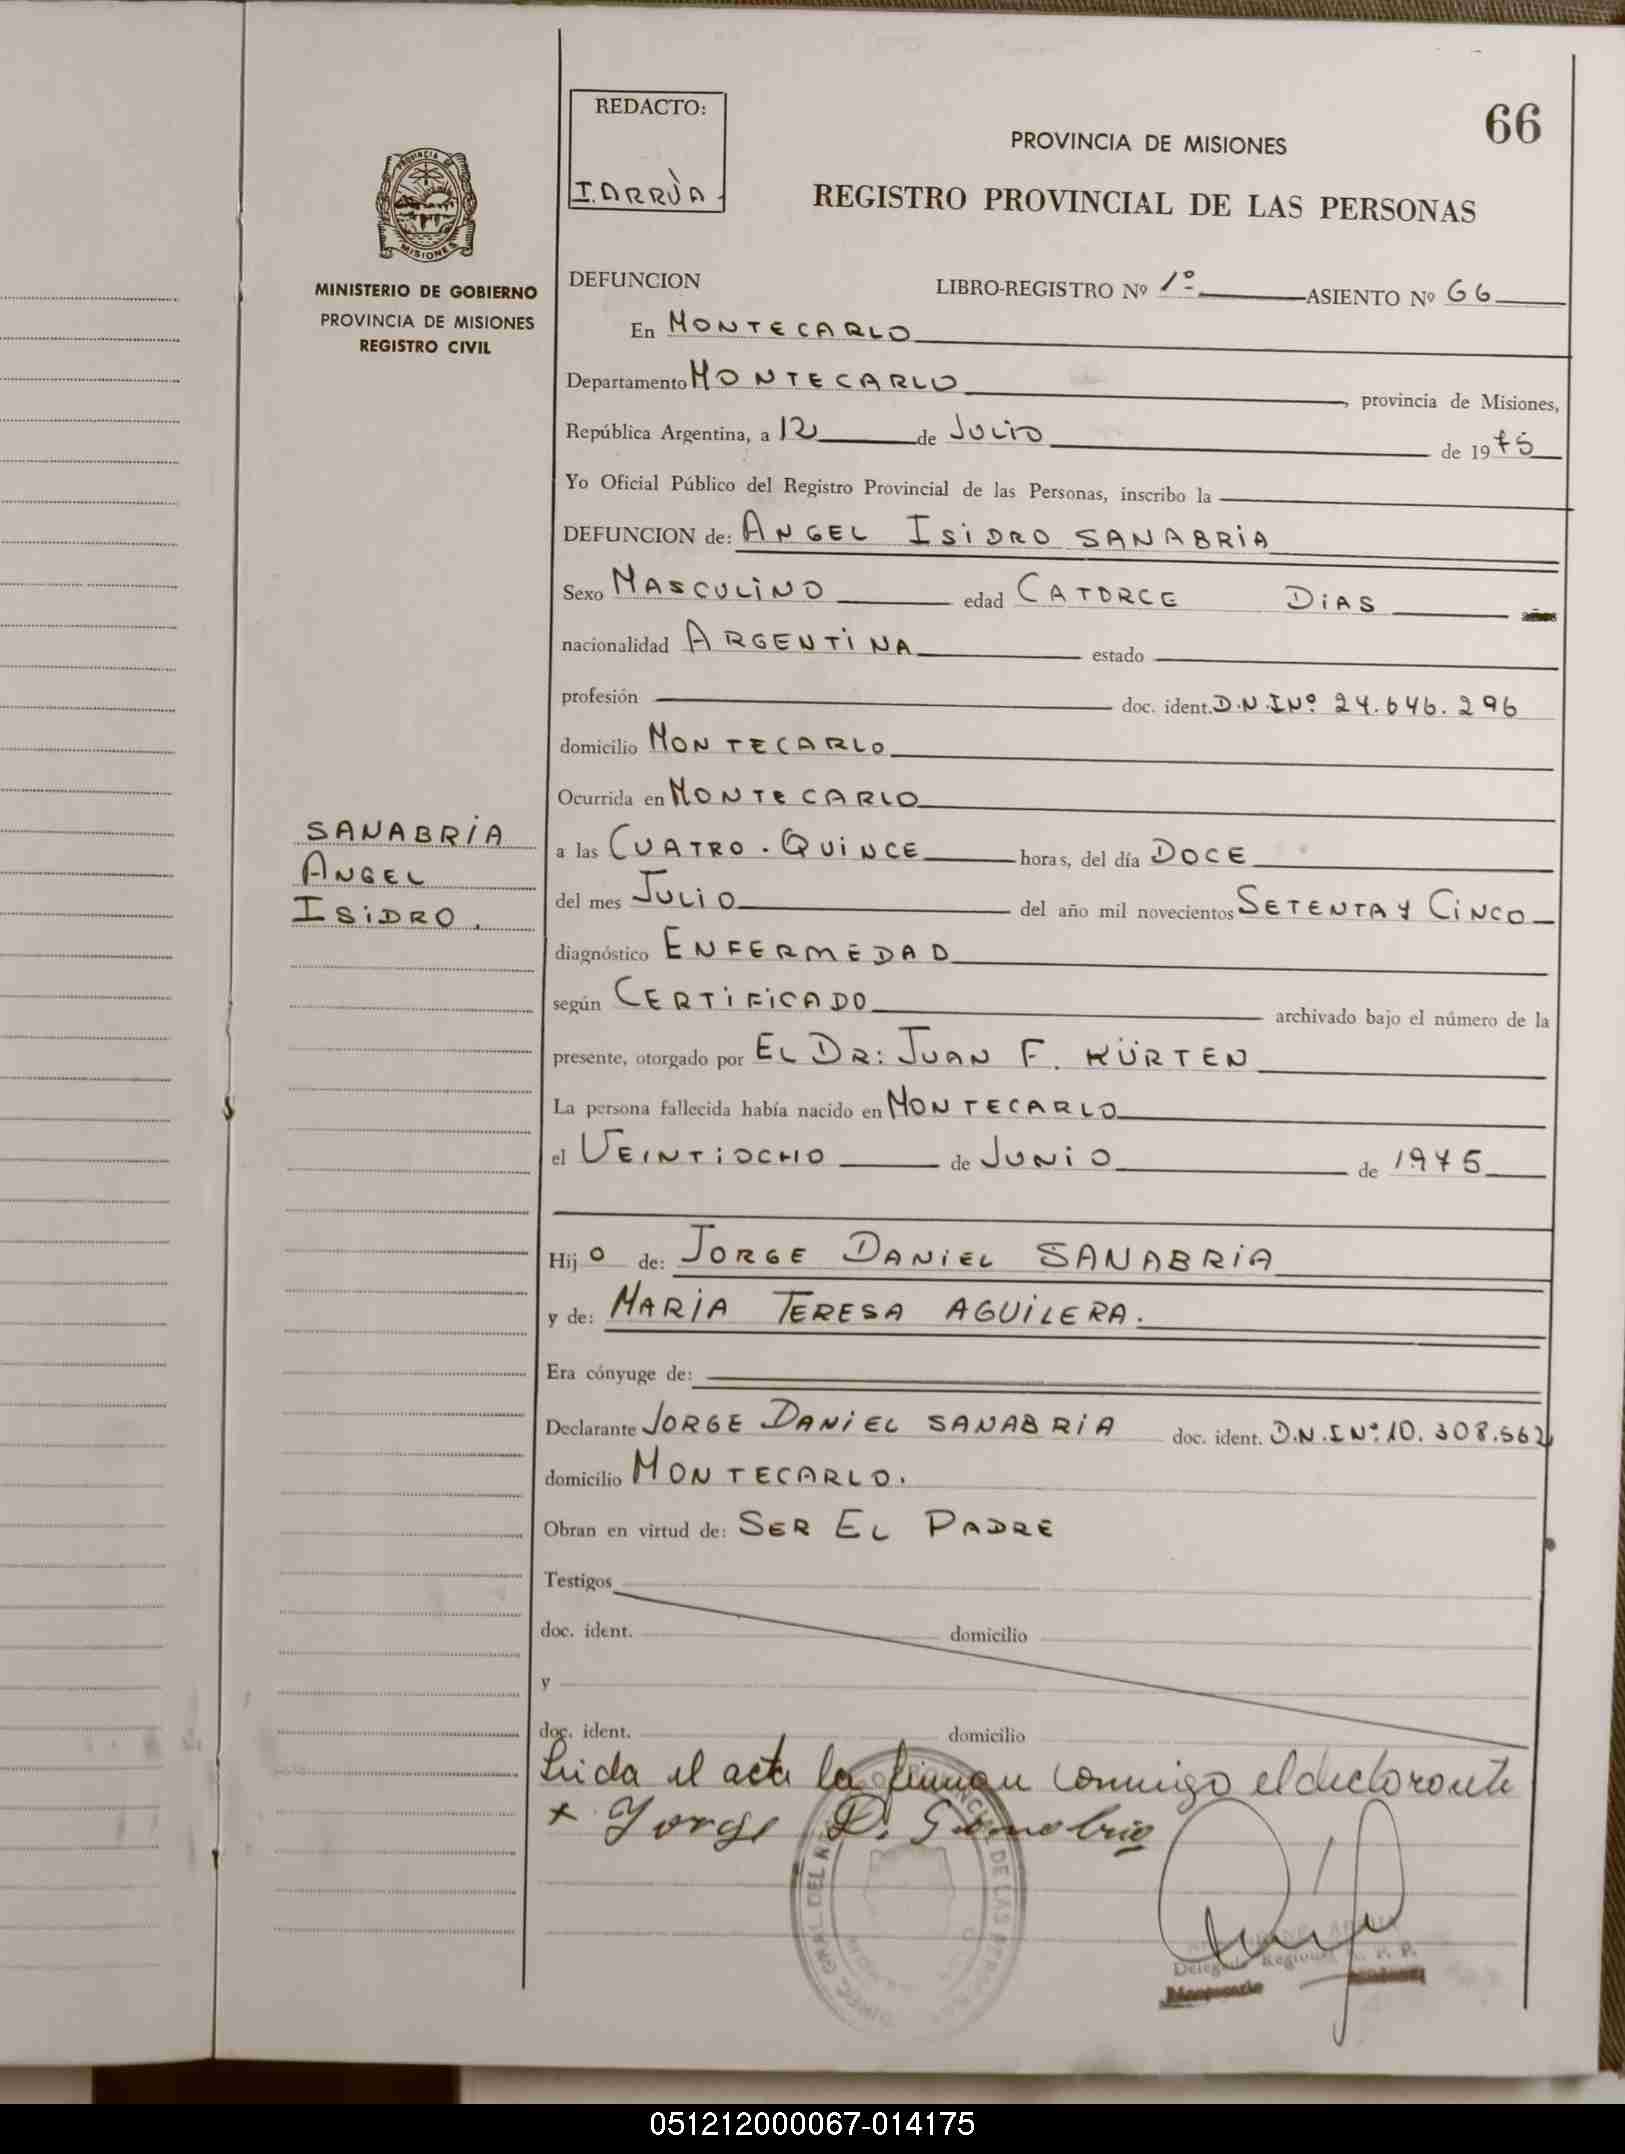 66
REDACTO:
I. ARRÙA
PROVINCIA DE MISIONES
REGISTRO PROVINCIAL DE LAS PERSONAS
PROVINCIA DE
MISIONES
MINISTERIO DE GOBIERNO
PROVINCIA DE MISIONES
REGISTRO CIVIL
DEFUNCION LIBRO-REGISTRO Nº 1º ASIENTO Nº 66
En MONTECARLO
Departamento MONTECARLO, provincia de Misiones,
República Argentina, a 12 de JULIO de 1975
Yo Oficial Público del Registro Provincial de las Personas, inscribo la
DEFUNCION de: ANGEL ISIDRO SANABRIA
Sexo MASCULINO edad CATORCE DIAS años
nacionalidad ARGENTINA estado
profesión doc. ident. D.N.I Nº 24.646.296
domicilio MONTECARLO
Ocurrida en MONTECARLO
SANABRIA
ANGEL
ISIDRO.
a las CUATRO. QUINCE horas, del día DOCE
del mes JULIO del año mil novecientos SETENTA Y CINCO
diagnóstico ENFERMEDAD
según CERTIFICADO archivado bajo el número de la
presente, otorgado por EL DR: JUAN F. KÜRTEN
La persona fallecida había nacido en MONTECARLO
el VEINTIOCHO de JUNIO de 1975
Hijo de: JORGE DANIEL SANABRIA
y de: MARIA TERESA AGUILERA.
Era cónyuge de:
Declarante JORGE DANIEL SANABRIA doc. ident. D.N.I Nº 10.308.562
domicilio MONTECARLO.
Obran en virtud de: SER EL PADRE
Testigos
doc. ident. domicilio
y
doc. ident. domicilio
Leida el acta la firman conmigo el declarante
+ Jorge D. Sanabria
051212000067-014175